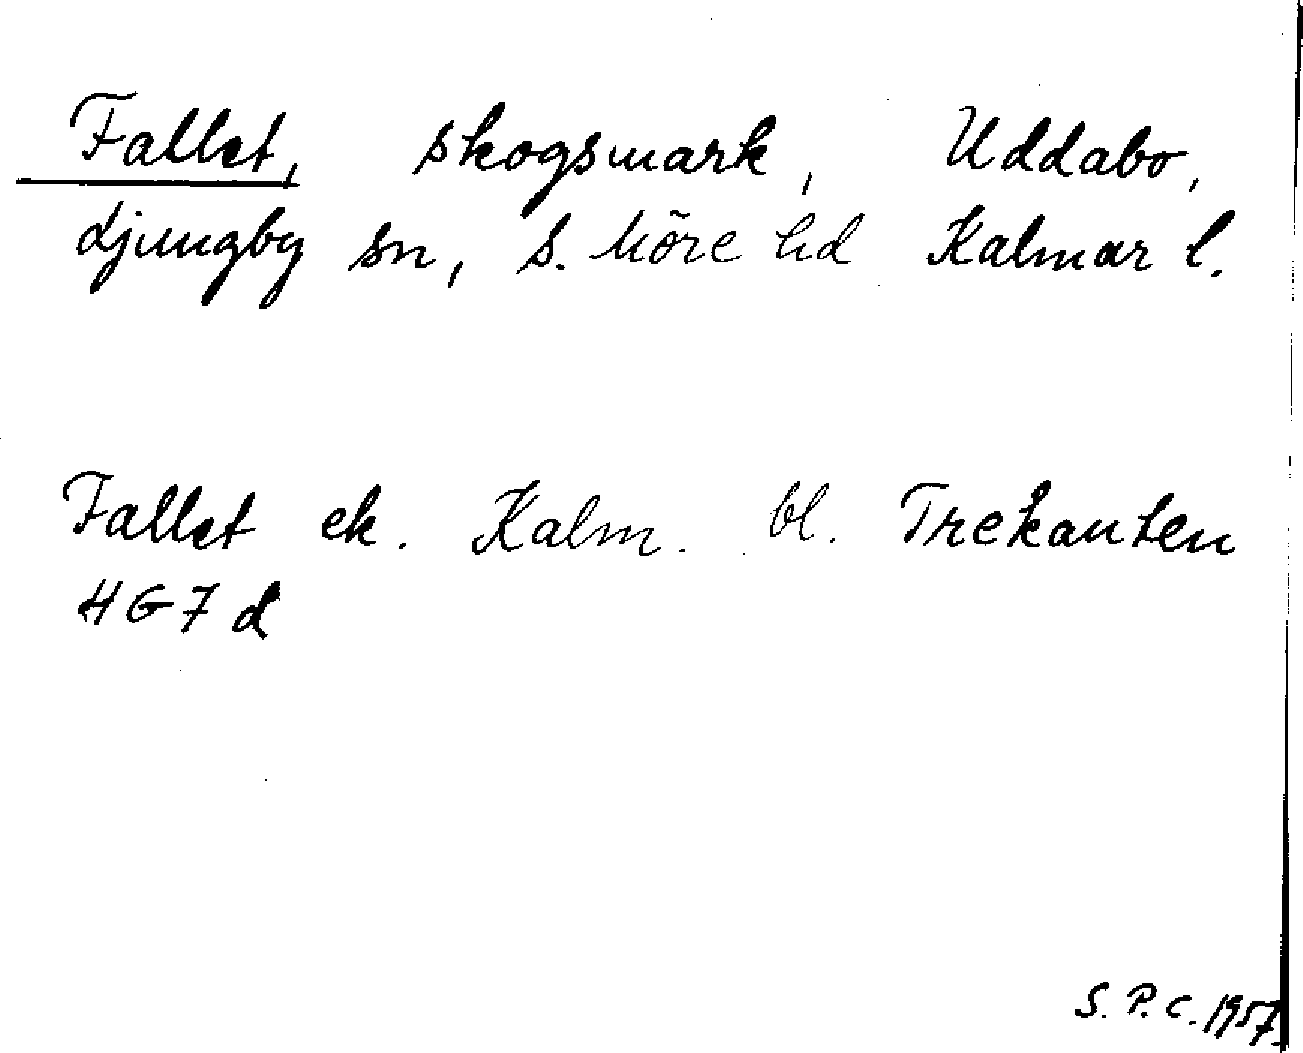 Fallet, skogsmark, Uddabo,
Ljungby sn, S. Möre hd Kalmar l.
Fallet ek. Kalm. bl. Trekanten
4G7d
S.P.C. 1957